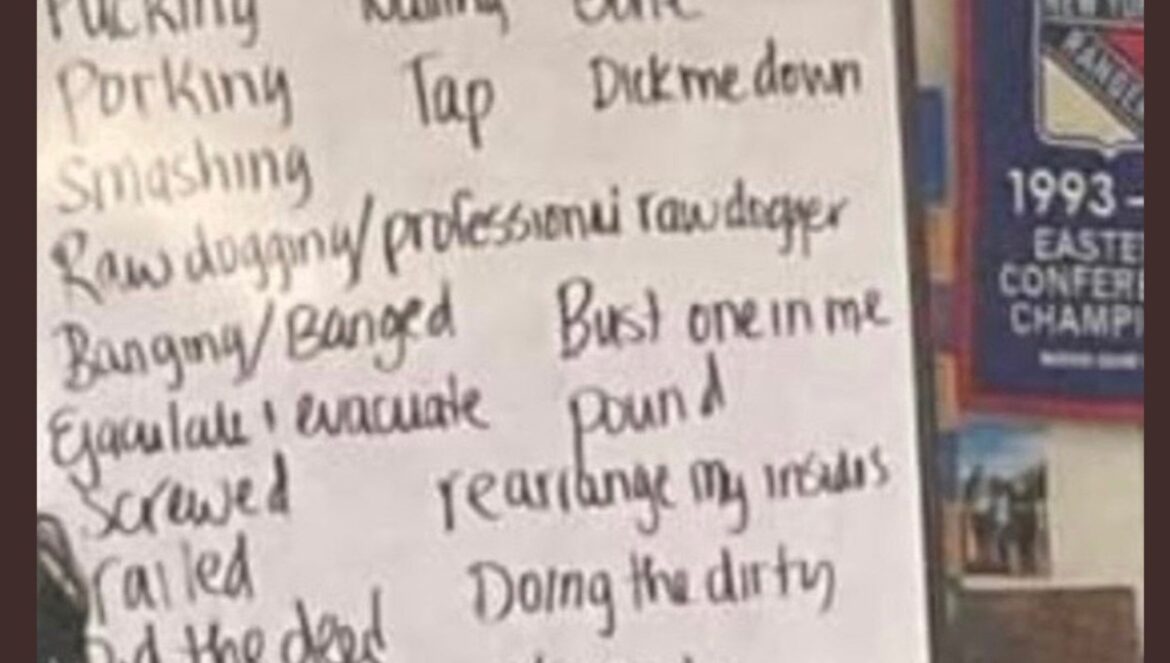 Fucking Nailing
Porking Tap Dick me down
Smashing
Raw dogging/professional raw dogger
Banging/Banged Bust one in me
Ejaculate & evacuate pound
Screwed rearrange my insides
railed Doing the dirty
the deed
NEW YORK
RANGERS
1993 -
EASTE
CONFER
CHAMPI